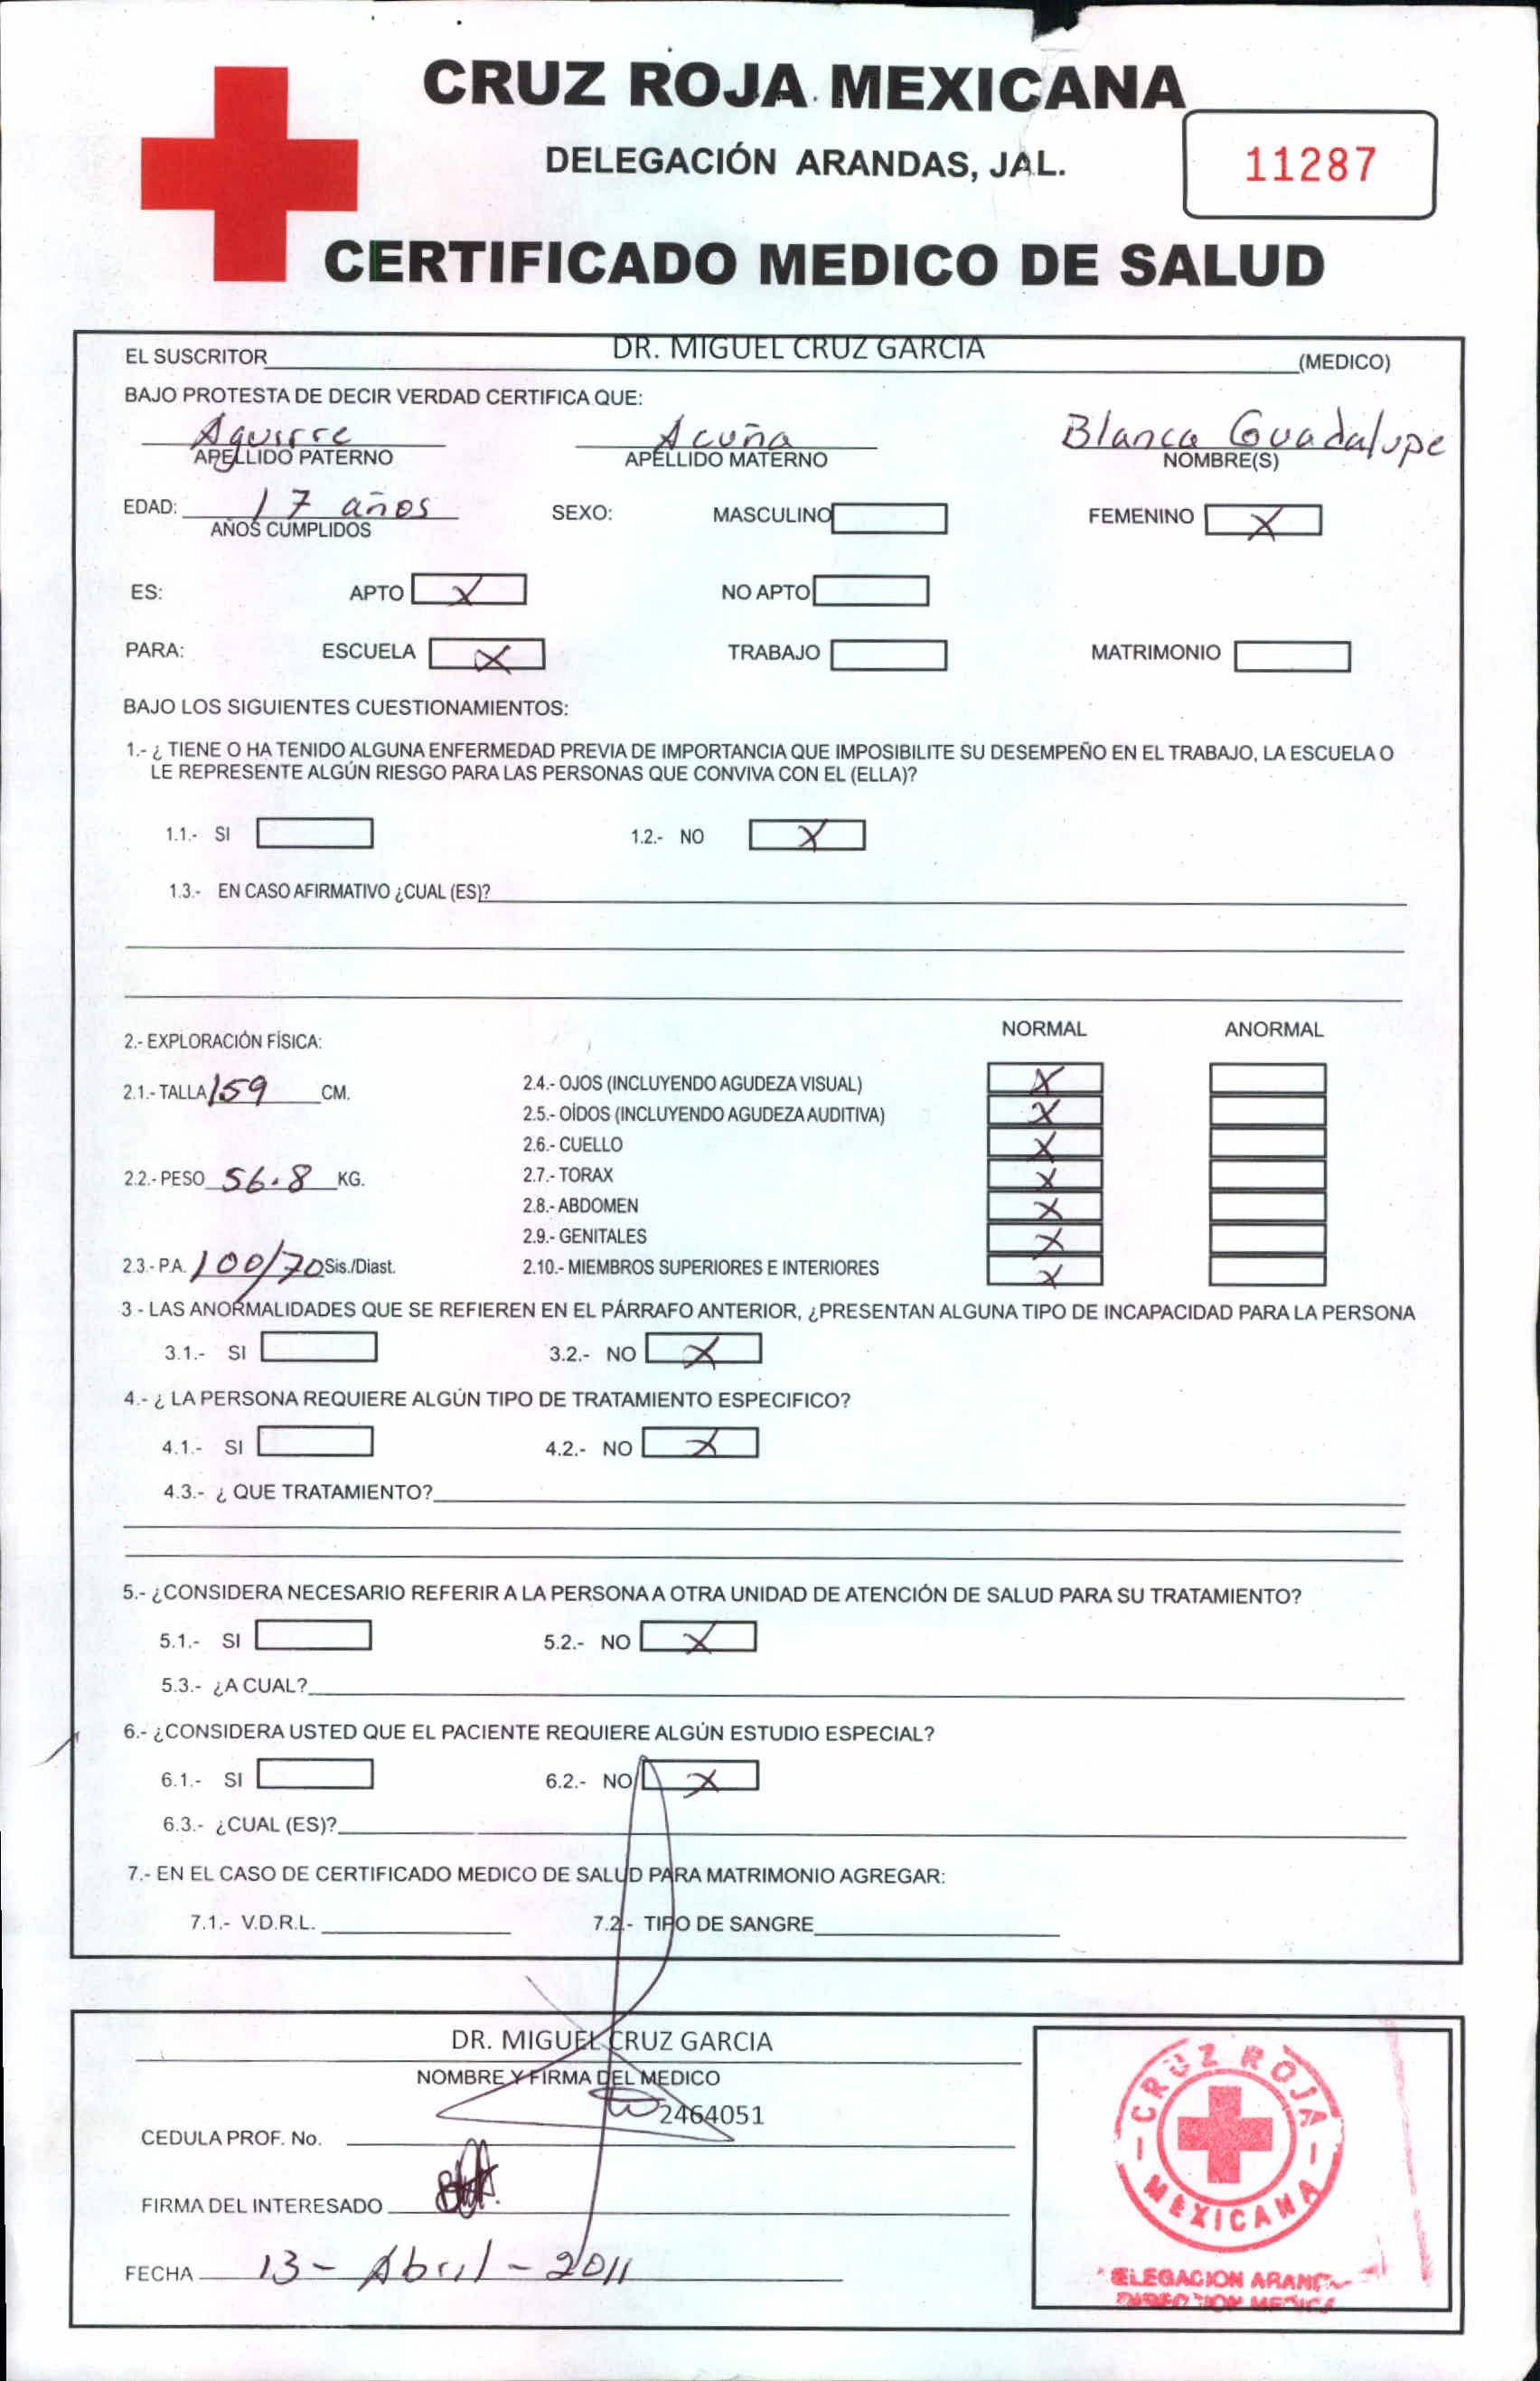 CRUZ ROJA MEXICANA
DELEGACIÓN ARANDAS, JAL.
11287
CERTIFICADO MEDICO DE SALUD
EL SUSCRITOR DR. MIGUEL CRUZ GARCIA (MEDICO)
BAJO PROTESTA DE DECIR VERDAD CERTIFICA QUE:
Aguirre Acuña Blanca Guadalupe
APELLIDO PATERNO APELLIDO MATERNO NOMBRE(S)
EDAD: 17 años SEXO: MASCULINO FEMENINO X
AÑOS CUMPLIDOS
ES: APTO X NO APTO
PARA: ESCUELA X TRABAJO MATRIMONIO
BAJO LOS SIGUIENTES CUESTIONAMIENTOS:
1.- ¿ TIENE O HA TENIDO ALGUNA ENFERMEDAD PREVIA DE IMPORTANCIA QUE IMPOSIBILITE SU DESEMPEÑO EN EL TRABAJO, LA ESCUELA O
LE REPRESENTE ALGÚN RIESGO PARA LAS PERSONAS QUE CONVIVA CON EL (ELLA)?
1.1.- SI 1.2.- NO X
1.3.- EN CASO AFIRMATIVO ¿CUAL (ES)?
NORMAL ANORMAL
2.- EXPLORACIÓN FÍSICA:
2.1.- TALLA 159 CM. 2.4.- OJOS (INCLUYENDO AGUDEZA VISUAL) X
2.5.- OÍDOS (INCLUYENDO AGUDEZA AUDITIVA) X
2.6.- CUELLO X
2.2.- PESO 56.8 KG. 2.7.- TORAX X
2.8.- ABDOMEN X
2.9.- GENITALES X
2.3.- P.A. 100/70 Sis./Diast. 2.10.- MIEMBROS SUPERIORES E INTERIORES X
3 - LAS ANORMALIDADES QUE SE REFIEREN EN EL PÁRRAFO ANTERIOR, ¿PRESENTAN ALGUNA TIPO DE INCAPACIDAD PARA LA PERSONA
3.1.- SI 3.2.- NO X
4.- ¿ LA PERSONA REQUIERE ALGÚN TIPO DE TRATAMIENTO ESPECIFICO?
4.1.- SI 4.2.- NO X
4.3.- ¿ QUE TRATAMIENTO?
5.- ¿CONSIDERA NECESARIO REFERIR A LA PERSONA A OTRA UNIDAD DE ATENCIÓN DE SALUD PARA SU TRATAMIENTO?
5.1.- SI 5.2.- NO X
5.3.- ¿A CUAL?
6.- ¿CONSIDERA USTED QUE EL PACIENTE REQUIERE ALGÚN ESTUDIO ESPECIAL?
6.1.- SI 6.2.- NO X
6.3.- ¿CUAL (ES)?
7.- EN EL CASO DE CERTIFICADO MEDICO DE SALUD PARA MATRIMONIO AGREGAR:
7.1.- V.D.R.L. 7.2.- TIPO DE SANGRE
DR. MIGUEL CRUZ GARCIA
NOMBRE Y FIRMA DEL MEDICO
2464051
CEDULA PROF. No.
FIRMA DEL INTERESADO
FECHA 13 - Abril - 2011
CRUZ ROJA
MEXICANA